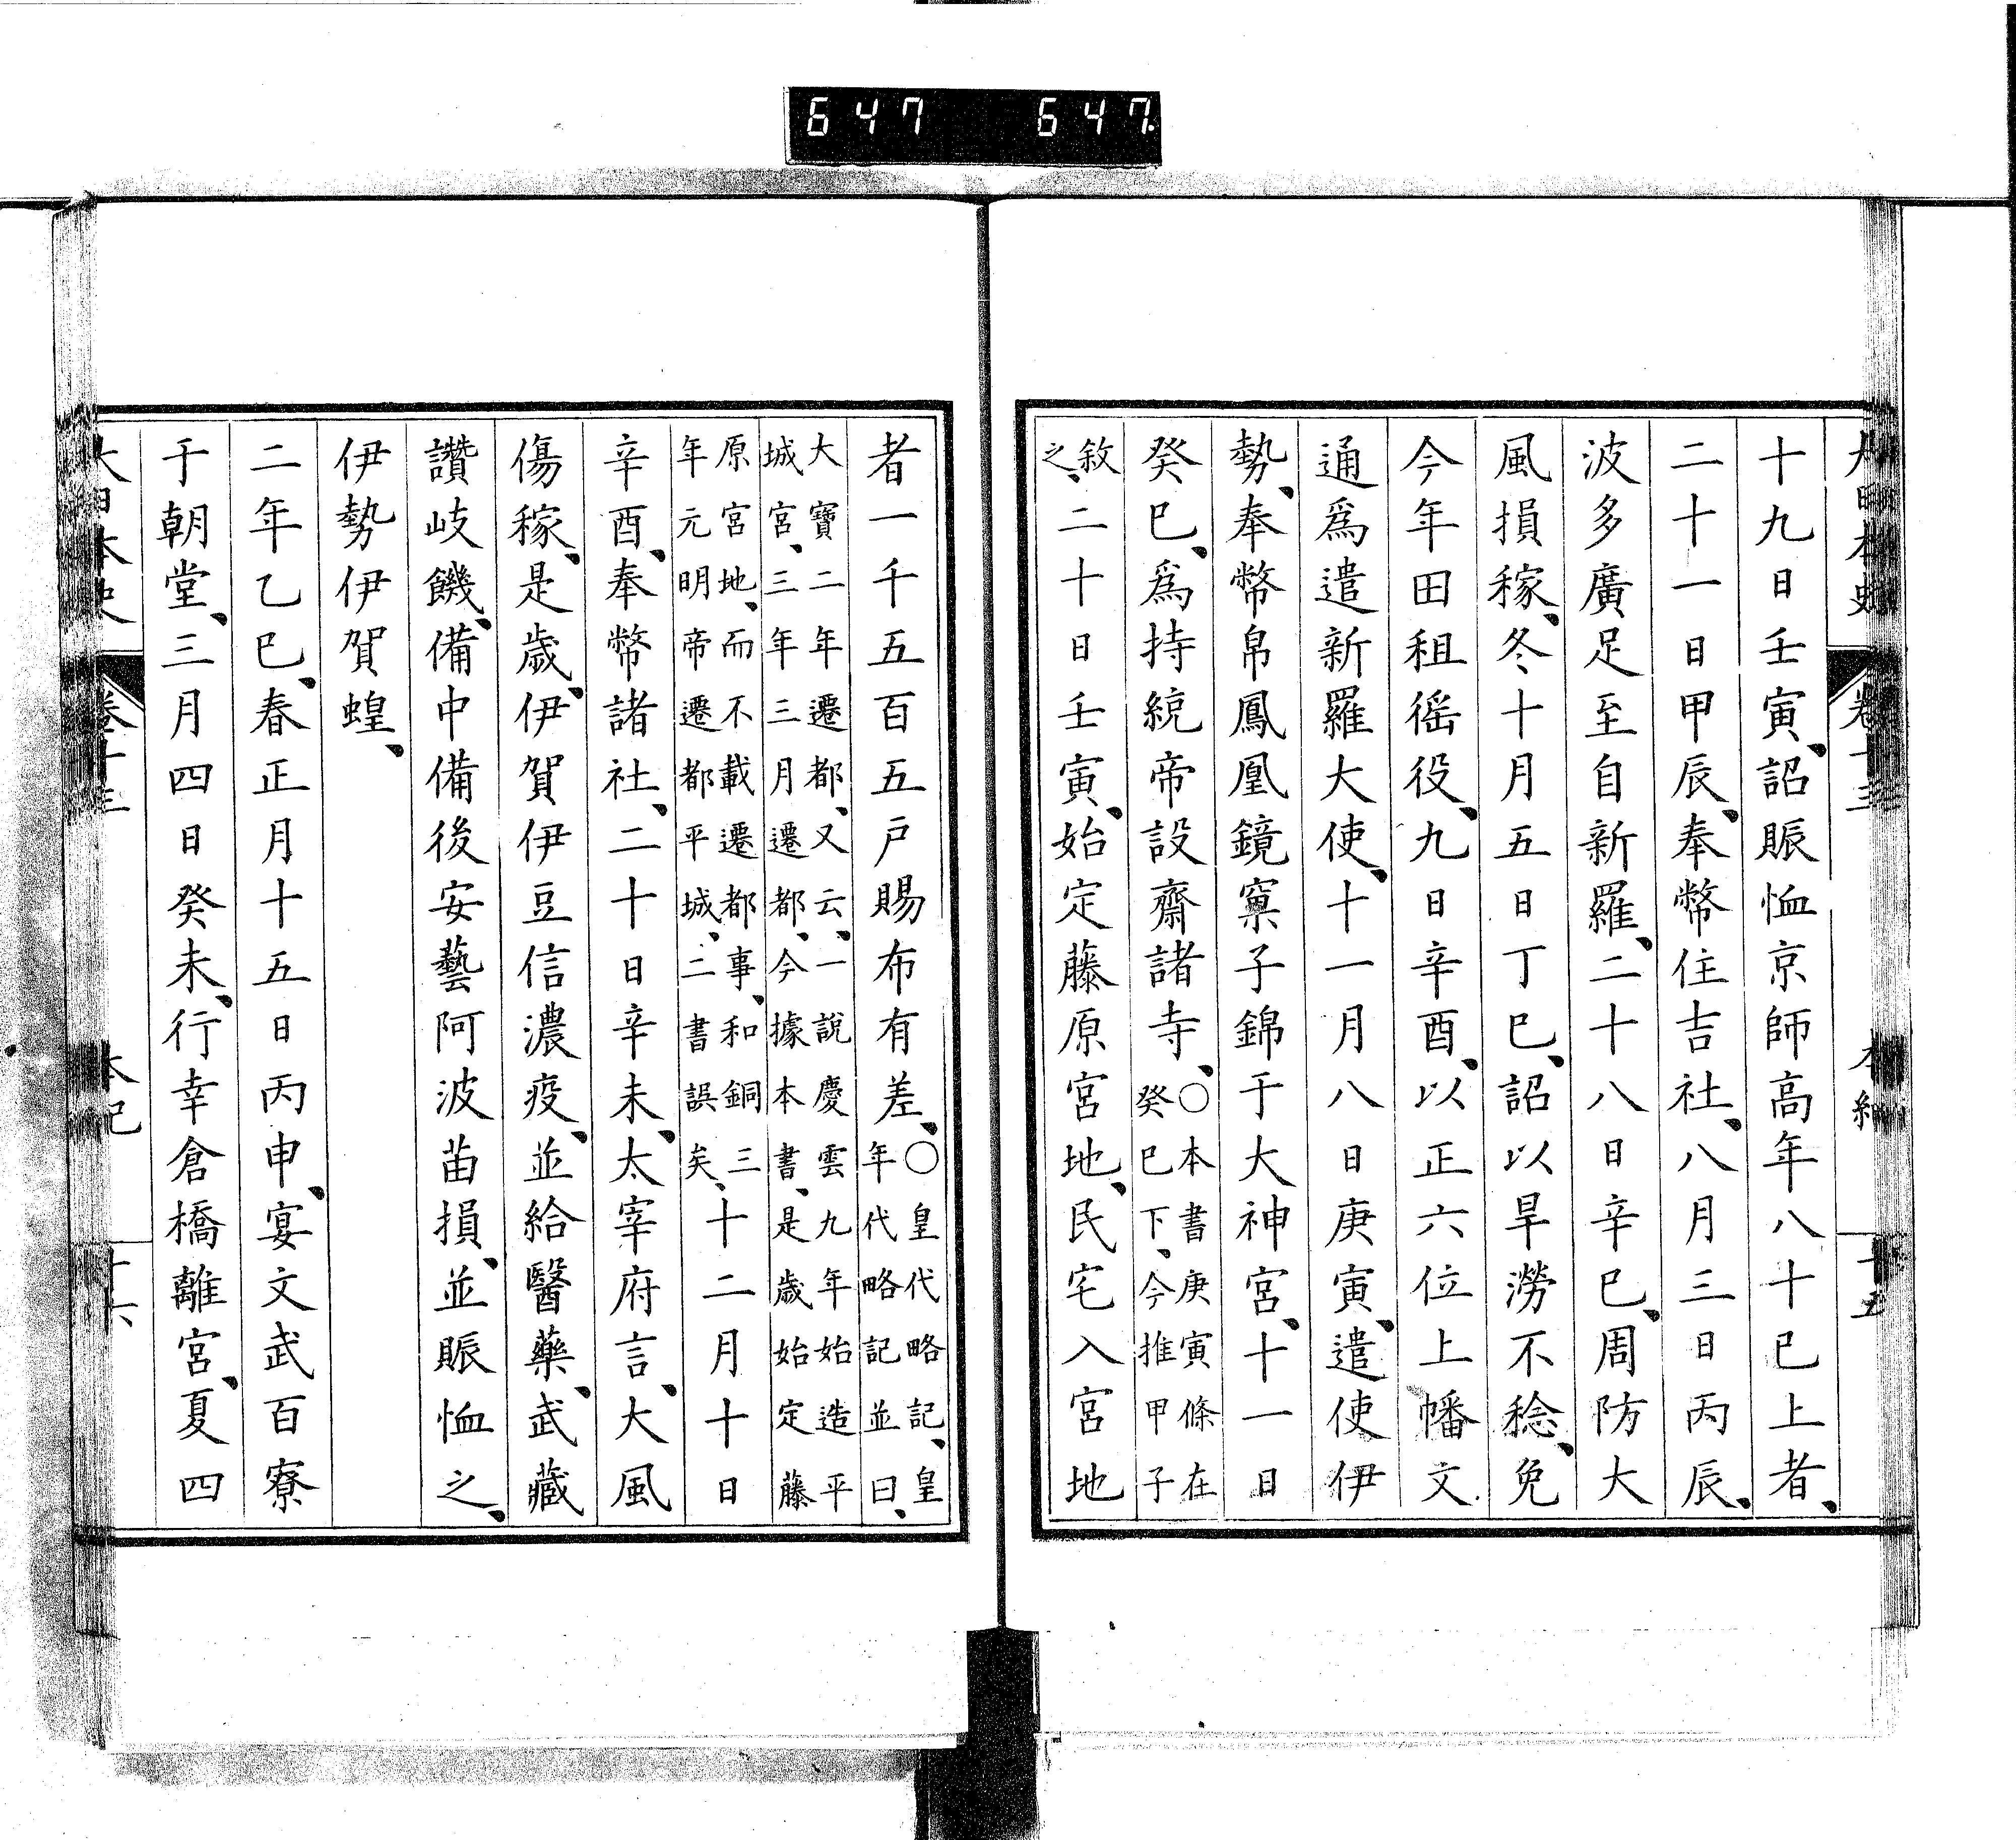 647 647
大日本史 卷十三 本紀 十五
十九日壬寅、詔賑恤京師高年八十已上者、
二十一日甲辰、奉幣住吉社、八月三日丙辰、
波多廣足至自新羅、二十八日辛巳、周防大
風損稼、冬十月五日丁巳、詔以旱澇不稔、免
今年田租徭役、九日辛酉、以正六位上幡文
通爲遣新羅大使、十一月八日庚寅、遣使伊
勢、奉幣帛鳳凰鏡窠子錦于大神宮、十一日
癸巳、爲持統帝設齋諸寺、〇本書庚寅條在癸巳下、今推甲子
敘之、二十日壬寅、始定藤原宮地、民宅入宮地
者一千五百五戸賜布有差、〇皇代略記、皇年代略記並曰、
大寶二年遷都、又云、一說慶雲九年始造平城宮、三年三月遷都、今據本書、是歳始定藤
原宮地、而不載遷都事、和銅三年元明帝遷都平城、二書誤矣、十二月十日
辛酉、奉幣諸社、二十日辛未、太宰府言、大風
傷稼、是歳、伊賀伊豆信濃疫、並給醫藥、武藏
讚岐饑、備中備後安藝阿波苗損、並賑恤之、
伊勢伊賀蝗、
二年乙巳、春正月十五日丙申、宴文武百寮
于朝堂、三月四日癸未、行幸倉橋離宮、夏四
大日本史 卷十三 本紀 十六